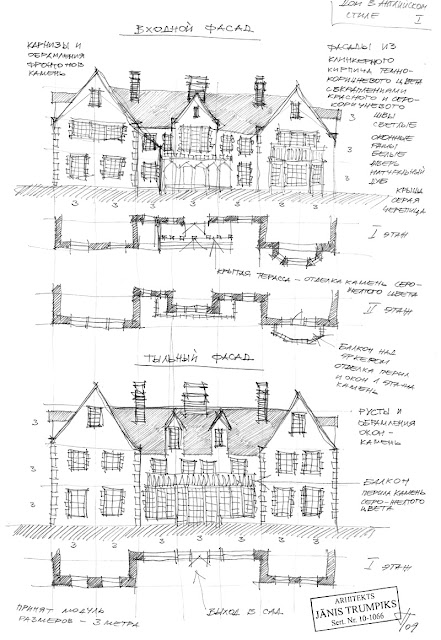 ДОМ В АНГЛИЙСКОМ
СТИЛЕ I
ВХОДНОЙ ФАСАД
КАРНИЗЫ И
ОБРАМЛЕНИЯ
ФРОНТОНОВ
КАМЕНЬ
ФАСАДЫ ИЗ
КЛИНКЕРНОГО
КИРПИЧА ТЕМНО-
КОРИЧНЕВОГО ЦВЕТА
С ВКРАПЛЕНИЯМИ
КРАСНОГО И СЕРО-
КОРИЧНЕВОГО
ШВЫ
СВЕТЛЫЕ
ОКОННЫЕ
РАМЫ
БЕЛЫЕ
ДВЕРЬ
НАТУРАЛЬНЫЙ
ДУБ
КРЫША
СЕРАЯ
ЧЕРЕПИЦА
3
3
3
3 3 3 3 3 3
I ЭТАЖ
КРЫТАЯ ТЕРАССА - ОТДЕЛКА КАМЕНЬ СЕРО-
ЖЕЛТОГО ЦВЕТА
II ЭТАЖ
БАЛКОН НАД
ЭРКЕРОМ
ОТДЕЛКА ПЕРИЛ
И ОКОН 1 ЭТАЖА
КАМЕНЬ
ТЫЛЬНЫЙ ФАСАД
РУСТЫ И
ОБРАМЛЕНИЯ
ОКОН -
КАМЕНЬ
БАЛКОН
ПЕРИЛА КАМЕНЬ
СЕРО-ЖЕЛТОГО
ЦВЕТА
3
3
3
3 3 3 3 3 3
I ЭТАЖ
ПРИНЯТ МОДУЛЬ
РАЗМЕРОВ - 3 МЕТРА
ВЫХОД В САД
ARHITEKTS
JĀNIS TRUMPIKS
Sert. Nr. 10-1066
/09